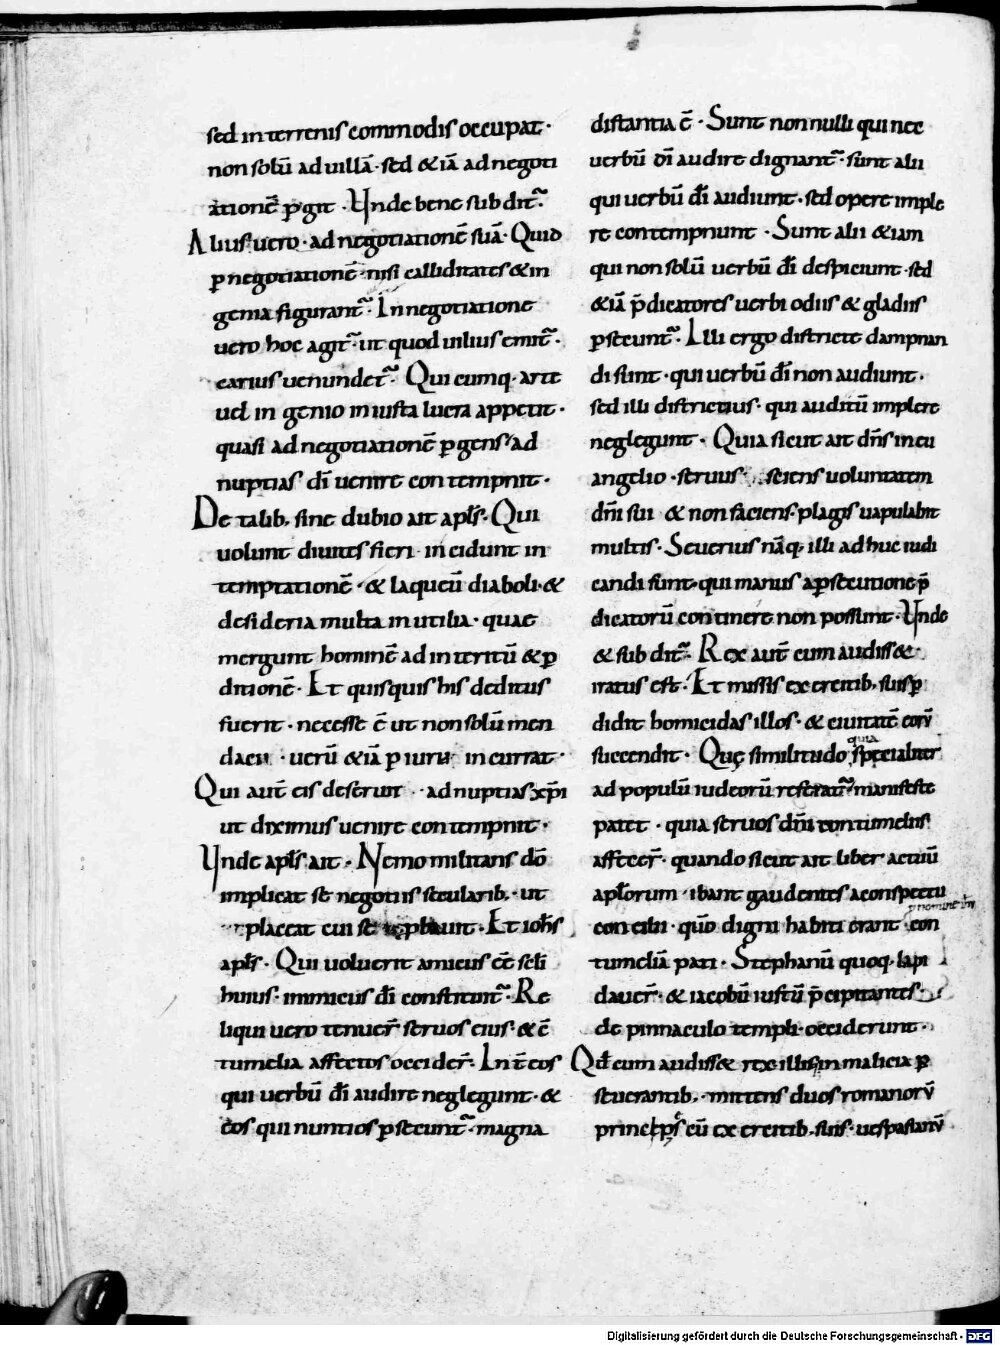 sed in terrenis commodis occupat·
non solũ ad uillã· sed &iã ad negoti
ationẽ ꝑgit · Unde bene subdit̃·
Alius uero · ad negotiationẽ suã· Quid
ꝑ negotiationẽ · nisi calliditates & in
genia figurant̃· In negotiatione
uero hoc agit̃· ut quod uilius emit̃·
carius uenundet̃· Qui cumq· arte
uel in genio iniusta lucra appetit·
quasi ad negotiationẽ ꝑgens· ad
nuptias dĩ uenire contempnit·
De talib; sine dubio ait apl̃s· Qui
uolunt diuites fieri · incidunt in
temptationẽ · & laqueũ diaboli· &
desideria multa inutilia· quae
mergunt hominẽ ad interitũ & ꝑ
ditionẽ· Et quisquis his deditus
fuerit · necesse ẽ ut non solũ men
dacii · uerũ &iã ꝑiurii incurrat·
Qui aut̃ eis deseruit · ad nuptias xp̃i
ut diximus uenire contempnit·
Unde apl̃s ait · Nemo militans dõ
implicat se negotiis secularib; · ut
placeat cui se ꝓbauit · Et ioh̃s
apl̃s · Qui uoluerit amicus eẽ scl̃i
huius· inimicus dĩ constituit̃· Re
liqui uero tenuer̃ seruos eius· & cõ
tumelia affectos occider̃· Int̃ eos
qui uerbũ dĩ audire neglegunt· &
eos qui nuntios ꝑsecunt̃· magna
distantia ẽ · Sunt nonnulli qui nec
uerbũ dĩ audire dignant̃· sunt alii
qui uerbũ dĩ audiunt· sed opere imple
re contempnunt · Sunt alii &iam
qui non solũ uerbũ dĩ despiciunt· sed
&iã p̃dicatores uerbi odiis & gladiis
ꝑsecunt̃· Illi ergo districte dampnan
di sunt · qui uerbũ dĩ non audiunt·
sed illi districtius· qui auditũ implere
neglegunt · Quia sicut ait dñs in eu
angelio · seruus · sciens uoluntatem
dñi sui & non faciens· plagis uapulabit
multis· Seuerius nãq; illi adhuc iudi
candi sunt· qui manus a ꝑsecutione p̃
dicatorũ continere non possunt· Unde
& subdit̃· Rex aut̃ cum audiss&·
iratus est· Et missis exercitib; suis ꝑ
didit homicidas illos· & ciuitatẽ eorũ
succendit · Quę similitudo quia specialiter
ad populũ iudeorũ referat̃· manifeste
patet · quia seruos dñi contumeliis
affecer̃· quando sicut ait liber actuũ
apl̃orum · ibant gaudentes a conspectu
concilii · quõ digni habiti erant p nomine ih̃u con
tumeliã pati · Stephanũ quoq; lapi
dauer̃· & iacobũ iustũ p̃cipitantes·
de pinnaculo templi· occiderunt·
Qđ cum audiss& rex· illis in malicia ꝑ
seuerantib; · mittens duos romanorũ
principes cũ exercitib; suis· uespasianũ
Digitalisierung gefördert durch die Deutsche Forschungsgemeinschaft - DFG